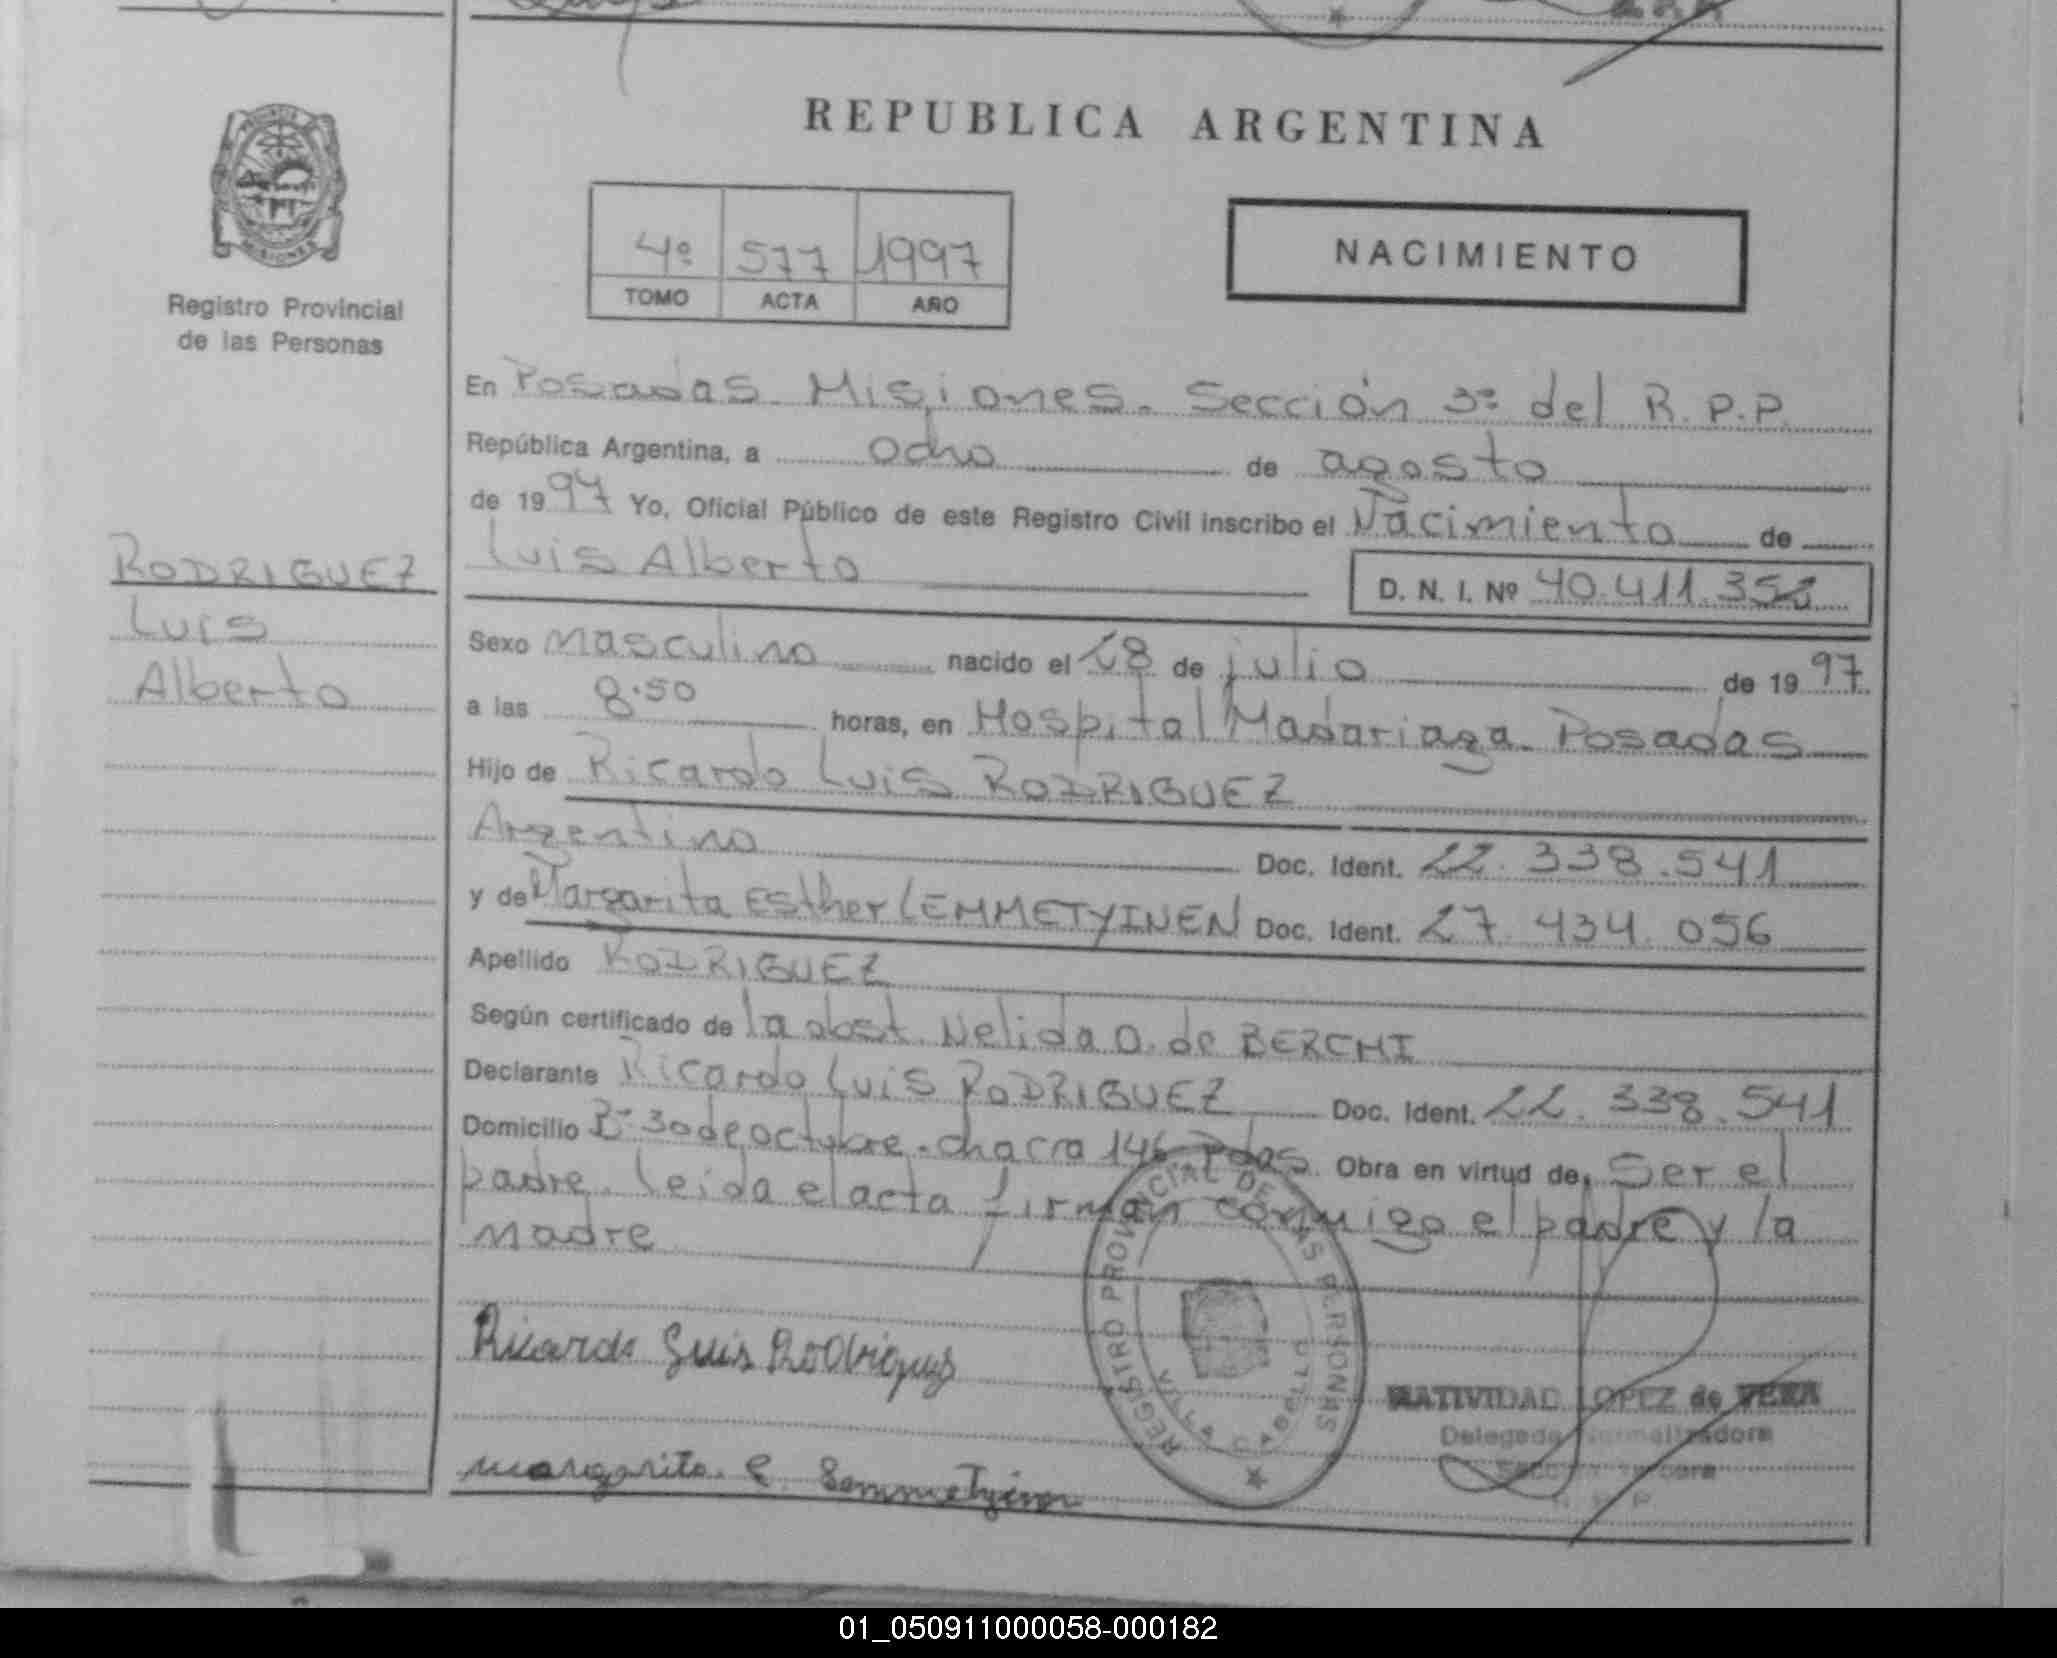 REPUBLICA ARGENTINA
4º 577 1997
TOMO ACTA AÑO
NACIMIENTO
Registro Provincial
de las Personas
RODRIGUEZ
Luis
Alberto
En Posadas Misiones. Sección 3ª del R.P.P.
República Argentina, a ocho de agosto
de 1997 Yo, Oficial Público de este Registro Civil inscribo el Nacimiento de
Luis Alberto D. N. I. Nº 40.411.352
Sexo Masculino nacido el 28 de julio de 1997
a las 8.50 horas, en Hospital Madariaga Posadas
Hijo de Ricardo Luis RODRIGUEZ
Argentino Doc. Ident. 22.338.541
y de Margarita Esther LEMMETYINEN Doc. Ident. 27.434.056
Apellido RODRIGUEZ
Según certificado de la obst. Nelida O. de BERCHI
Declarante Ricardo Luis RODRIGUEZ Doc. Ident. 22.338.541
Domicilio Bº 30 de octubre. chacra 146 Pdas. Obra en virtud de Ser el
padre. Leida el acta firman conmigo el padre y la
madre
Ricardo Luis Rodriguez
REGISTRO PROVINCIAL DE LAS PERSONAS
VILLA CABELLO
NATIVIDAD LOPEZ de VERA
Delegada Normalizadora
Sección Tercera
R. P. P.
Margarita E. Lemmetyinen
01_050911000058-000182